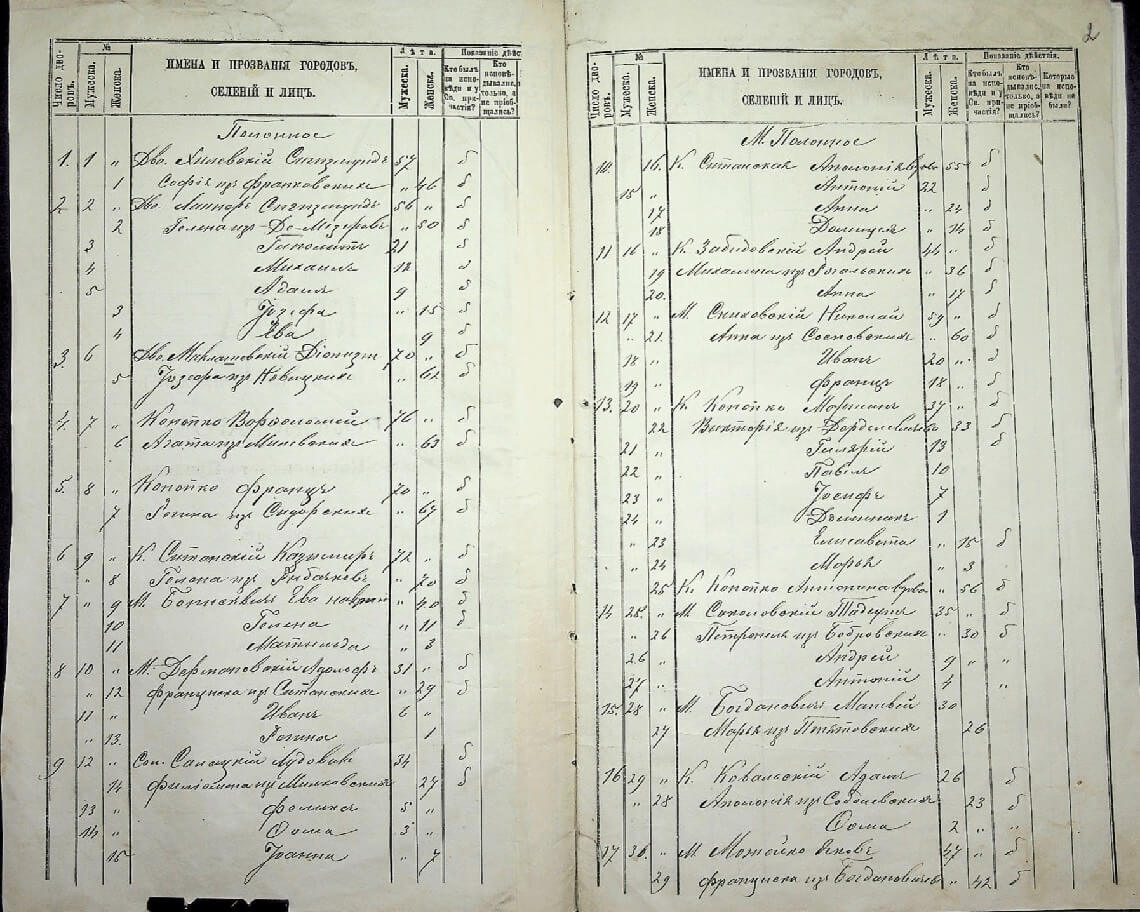 Число дворовъ.
№
Мужеска.
Женска.
ИМЕНА И ПРОЗВАНІЯ ГОРОДОВЪ,
СЕЛЕНІЙ И ЛИЦЪ.
Лѣта.
Мужеска.
Женска.
Показаніе дѣйст
Кто былъ на исповѣди и у Св. причастія?
Кто исповѣдывался, только, а не пріобщались?
Полонное
1. 1 „ Дво. Хилевскій Сигизмундъ 57 б
1 Софія изъ Франковскихъ „ 46 б
2. 2 „ Дво. Сигизмундъ 56 „ б
2 Гелена изъ „ 50 б
3 Ипполитъ 21 б
4 Михаилъ 12 б
5 Адамъ 9 б
3 Іозефа „ 15 б
4 Ева 9 б
3. 6 Дво. Діонизій 70 „ б
5 Іозефа изъ Новицкихъ „ 62 б
4. 7 „ Конопко Варѳоломей 76 „ б
6 Агата изъ Милевскихъ „ 63 б
5. 8 „ Конопко Францъ 70 „ б
7 Регина изъ Сидорскихъ „ 67 б
6 9 „ К. Ситанскій Казимиръ 72 „ б
„ 8 Гелена изъ Рыбачковъ „ 70 б
7 „ 9 М. Ева „ 40 б
10 Гелена „ 11 б
11 Матильда „ 3
8 10 „ М. Дермановскій Адольфъ 31 „ б
„ 12 Франциска изъ Ситанскихъ „ 29 б
11 „ Иванъ 6 „
„ 13. Регина 1
9 12 „ Сапецкій Лудовикъ 34 б
14 изъ Малковскихъ „ 27 б
13 „ 5 „
14 „ Ѳома 3 „
15 Іоанна „ 7
2
Число дворовъ.
№
Мужеска.
Женска.
ИМЕНА И ПРОЗВАНІЯ ГОРОДОВЪ,
СЕЛЕНІЙ И ЛИЦЪ.
Лѣта.
Мужеска.
Женска.
Показаніе дѣйствія.
Кто былъ на исповѣди и у Св. причастія?
Кто исповѣдывались, только, а не пріобщались?
Которые на исповѣди не были?
М. Полонное
10. 16. К. Ситанская Аполонія вдова „ 55 б
15 „ Антоній 22 б
17 Анна „ 24 б
18 „ 14 б
11 16 „ К. Забидовскій Андрей 44 „ б
19 Михалина изъ Рогальскихъ „ 36 б
20. Анна „ 17 б
12 17 „ М. Николай 59 „ б
„ 21. Анна изъ Сосновскихъ „ 60 б
18 „ Иванъ 20 „ б
19 „ Францъ 18 „ б
13. 20 „ К. Конопко Марціанъ 37 „ б
22 Викторія изъ 33 б
21 „ Гилярій 13 б
22 „ Павелъ 10
23 „ Іосифъ 7
24 „ Доминикъ 1
„ 23 Елисавета „ 15 б
„ 24 Марья „ 3
25 К. Конопко вдова „ 56 б
14 25. „ М. Соколовскій Тадеушъ 35 „ б
„ 26 Петронеля изъ Бобровскихъ „ 30 б
26 „ Андрей 9 „ „
27 „ Антоній 4 „
15. 28 „ М. Богдановичъ Матвѣй 30
27 Марья изъ 26
16 29 „ К. Ковальскій Адамъ 26 б
„ 28 Аполонія изъ Соболевскихъ 23 б
Ѳома 2 „ „
17 30. „ М. Можейко 47 „ б
29 Франциска изъ Богдановичовъ „ 42 б